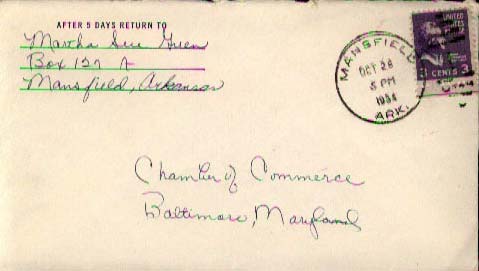 AFTER 5 DAYS RETURN TO
Martha Sue Green
Box 127 A
Mansfield, Arkansas
MANSFIELD
OCT 28
5 PM
1954
ARK.
UNITED
STATES
CENTS 3
Chamber of Commerce
Baltimore, Maryland